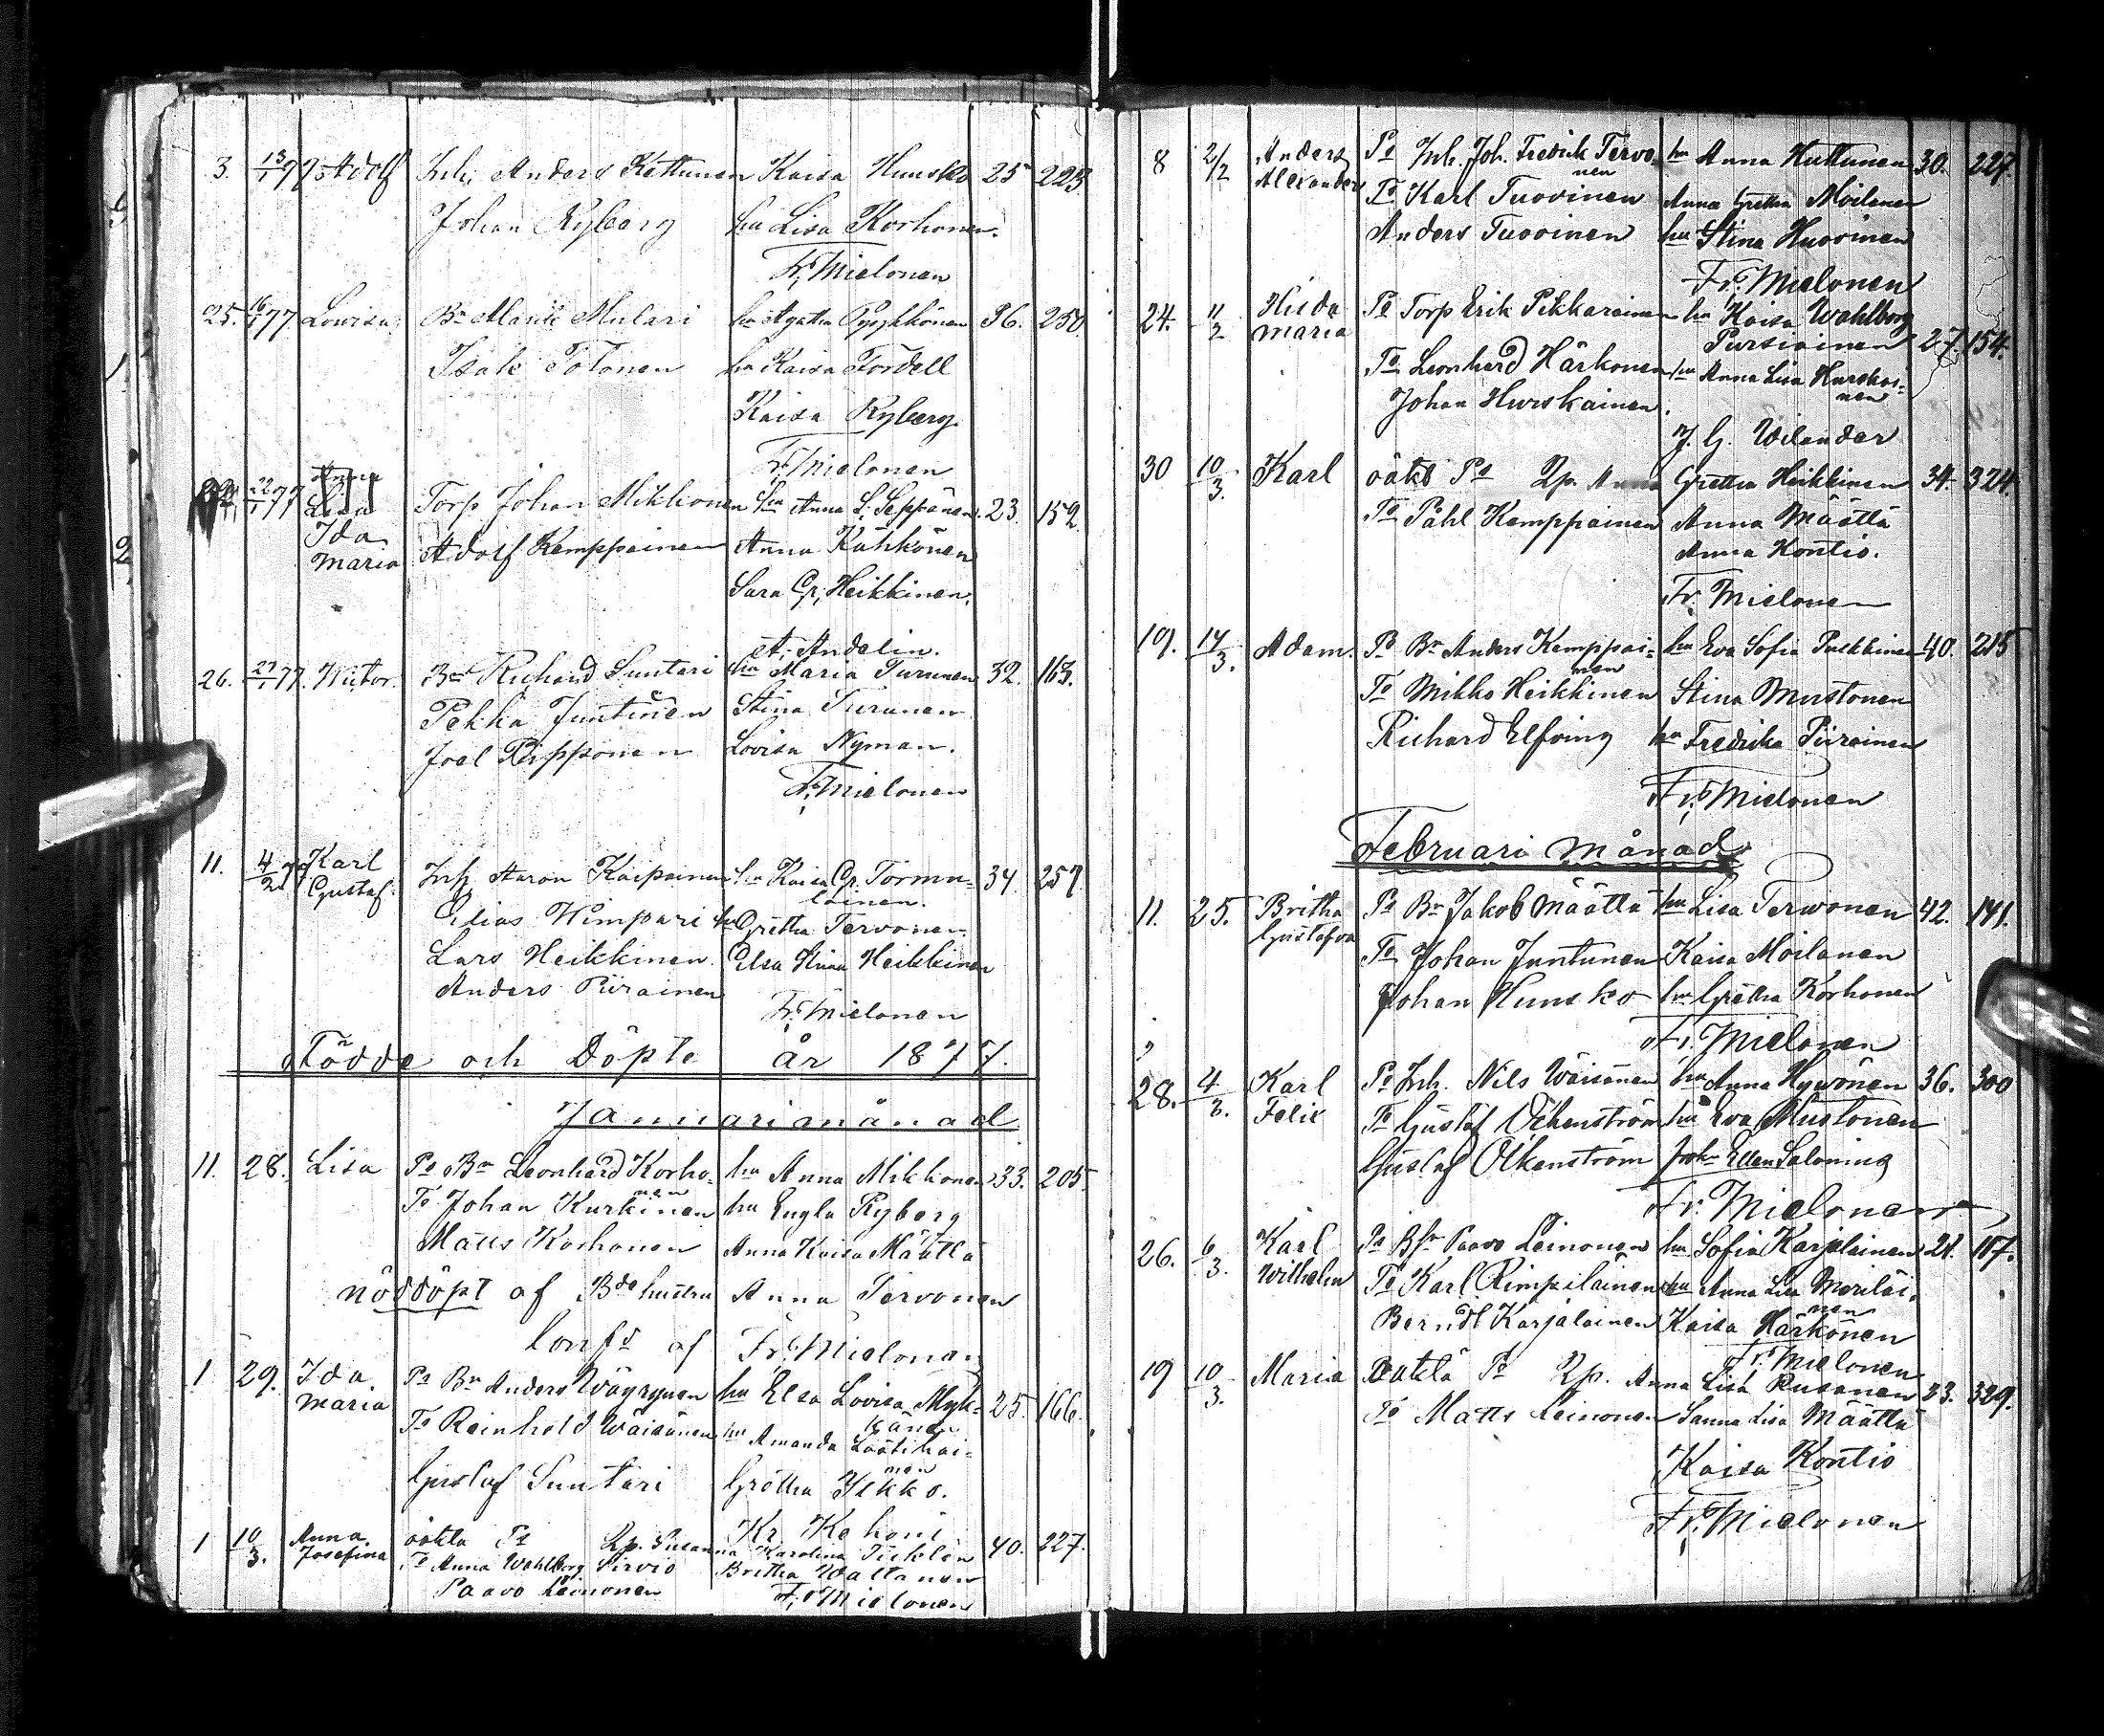 3. 13/1 77 Adolf Inh. Anders Kettunen Kaisa Hunsko 25 223
Johan Ryberg hu Lisa Korhonen.
Fr. Mielonen
25. 16/1 77. Lowisa Bn Mulari hu Agatha Pyykkönen 36. 250.
Isak Tolonen hu Kaisa Fordell
Kaisa Ryberg.
Fr. Mielonen
22/1 77 Anna Lisa Ida Maria Torp Johan Mikkonen hu Anna L. Seppänen. 23. 152.
Adolf Kemppainen Anna Kähkönen
Sara Gr. Heikkinen.
A. Andelin.
26. 27/1 77. Victor. Bn Richard Suntari hu Maria Turunen 32. 163.
Pekka Juntunen Stina Turunen
Joel Pipponen Lovisa Nyman.
Fr. Mielonen
11. 4/2 77 Karl Gustaf. Inh. Aaron Kaipainen hu Kaisa Gr. Törmä- 34. 257.
länen.
Elias Wimpari hu Gretha Tervonen.
Lars Heikkinen Elsa Stina Heikkinen
Anders Piirainen
Fr. Mielonen
Födde och Döpte år 1877.
Januari månad
11. 28. Lisa Ps Bn Leonhard Korho- hu Anna Mikkonen 33. 205.
nen
Te Johan Kurkinen hu Engla Ryberg
Matts Korhonen Anna Kaisa Määttä
nöddöpt af Bde hustru Anna Tervonen
Conf af Fr. Mielonen
1 29. Ida Maria Ps Bn Anders Wäyrynen hu Elsa Lovisa Myk- 25. 166.
känen
Te Reinhold Wäisänen hu Amanda Läätikäi-
nen
Gustaf Suntari Gretha Ikko.
Kr. Kehoni
1 10/3. Anna Josefina oäkta Ps Qp. Susanna Karolina Ticklén 40. 227.
Te Anna Wahlberg Sirviö Britha Waltanen
Paavo Leinonen Fr. Mielonen
8 2/2 Anders Alexander Ps Inh. Joh. Fredrik Tervo- hu Anna Huttunen 30. 227.
nen
Te Karl Tuovinen Anna Gretha Moilanen
Anders Tuovinen hu Stina Huovinen
Fr. Mielonen
24. 11/2 Hilda Maria Ps Torp Erik Pikkarainen hu Kaisa Wahlberg
Pursiainen 27. 154.
Te Leonhard Härkönen hu Anna Lisa Hurskai-
nen
Johan Hurskainen.
J. G. Wilander
30 10/3. Karl oäkt Ps Qp. Anna Gretha Heikkinen 34. 324.
Te Påhl Kemppainen Anna Määttä
Anna Kontio.
Fr. Mielonen
19. 14/3. Adam. Ps Bn Anders Kemppai- hu Eva Sofia Pulkkinen 40. 215
nen
Te Mikko Heikkinen Stina Mustonen
Richard Elfving hu Fredrika Piirainen
Fr. Mielonen
Februari månad
11. 25. Britha Gustafva Ps Bn Jakob Määttä hu Lisa Terwonen 42. 141.
Te Johan Juntunen Kaisa Moilanen
Johan Hunsko hu Gretha Korhonen
Fr. Mielonen
28. 4/3. Karl Felix Ps Inh. Nils Wäisänen hu Anna Hywönen 36. 300
Te Gustaf Öhkenström hu Eva Mustonen
Gustaf Öhkenström Frkn Ellen Saloning
Fr. Mielonen
26. 6/3. Karl Wilhelm Ps Paavo Leinonen hu Sofia Karjalainen 28. 117.
Te Karl Rimpiläinen hu Anna Lisa Meriläi-
nen
Berndt Karjalainen Kaisa Härkönen
Fr. Mielonen
19 10/3. Maria oäkta Ps Qp. Anna Lisa Rusanen 33. 329.
Te Matts Leinonen Sanna Lisa Määttä
Kaisa Kontio
Fr. Mielonen